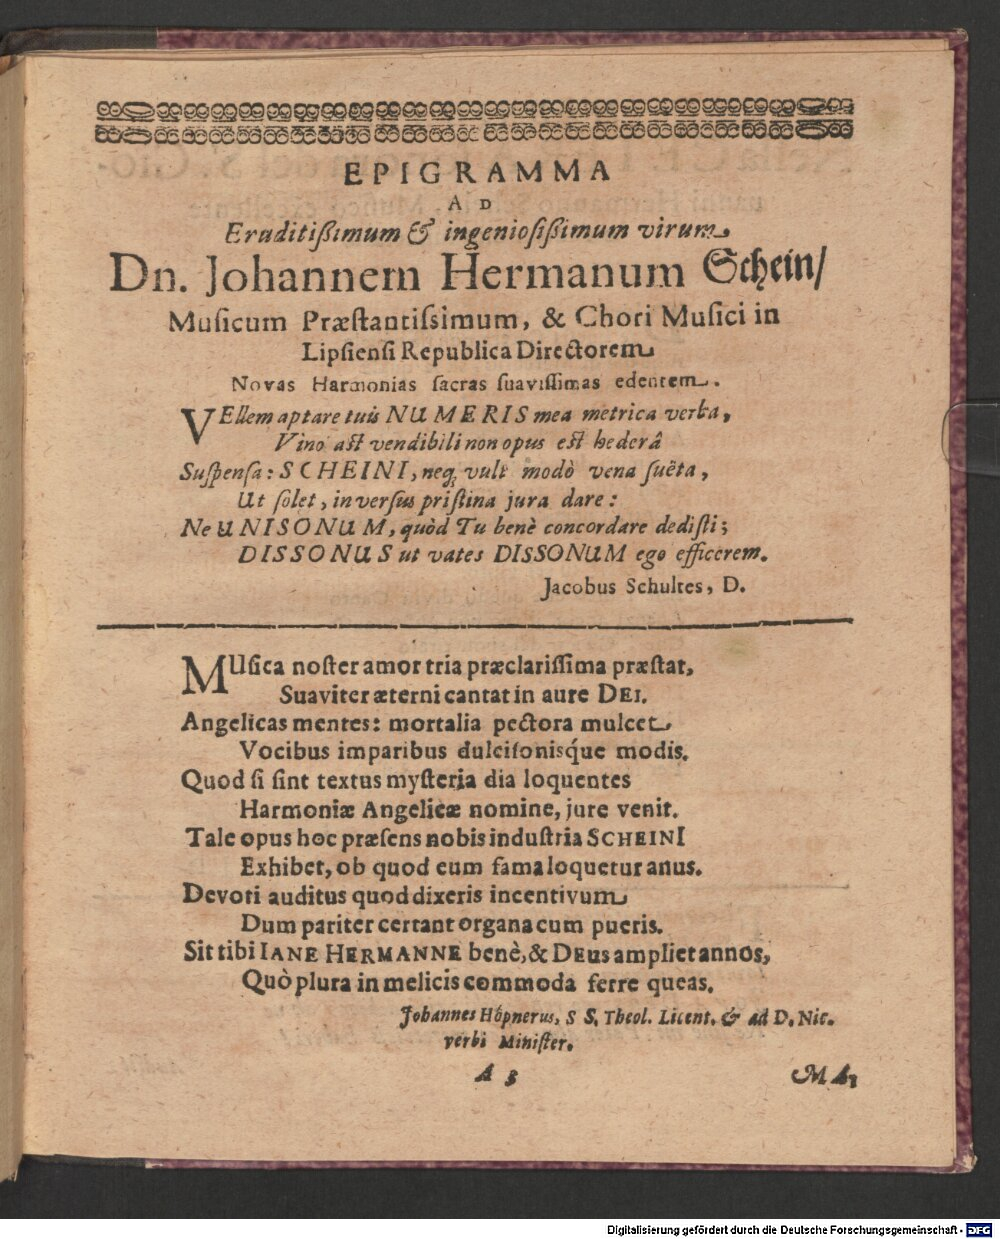 EPIGRAMMA
AD
Eruditißimum & ingeniosißimum virum
Dn. Johannem Hermanum Schein/
Musicum Præstantissimum, & Chori Musici in
Lipsiensi Republica Directorem
Novas Harmonias sacras suavissimas edentem.
VEllem aptare tuis NUMERIS mea metrica verba,
Vino ast vendibili non opus est hederâ
Suspensa: SCHEINI, neq; vult modò vena suëta,
Ut solet, in versus pristina jura dare:
Ne UNISONUM, quòd Tu benè concordare dedisti;
DISSONUS ut vates DISSONUM ego efficerem.
Jacobus Schultes, D.
MUsica noster amor tria præclarissima præstat,
Suaviter æterni cantat in aure DEI.
Angelicas mentes: mortalia pectora mulcet
Vocibus imparibus dulcisonisq́ue modis.
Quod si sint textus mysteria dia loquentes
Harmoniæ Angelicæ nomine, jure venit.
Tale opus hoc præsens nobis industria SCHEINI
Exhibet, ob quod eum fama loquetur anus.
Devoti auditus quod dixeris incentivum
Dum pariter certant organa cum pueris.
Sit tibi IANE HERMANNE benè, & DEus ampliet annos,
Quò plura in melicis commoda ferre queas.
Johannes Höpnerus, S S. Theol. Licent. & ad D. Nic.
verbi Minister.
A 3
MA-
Digitalisierung gefördert durch die Deutsche Forschungsgemeinschaft - DFG